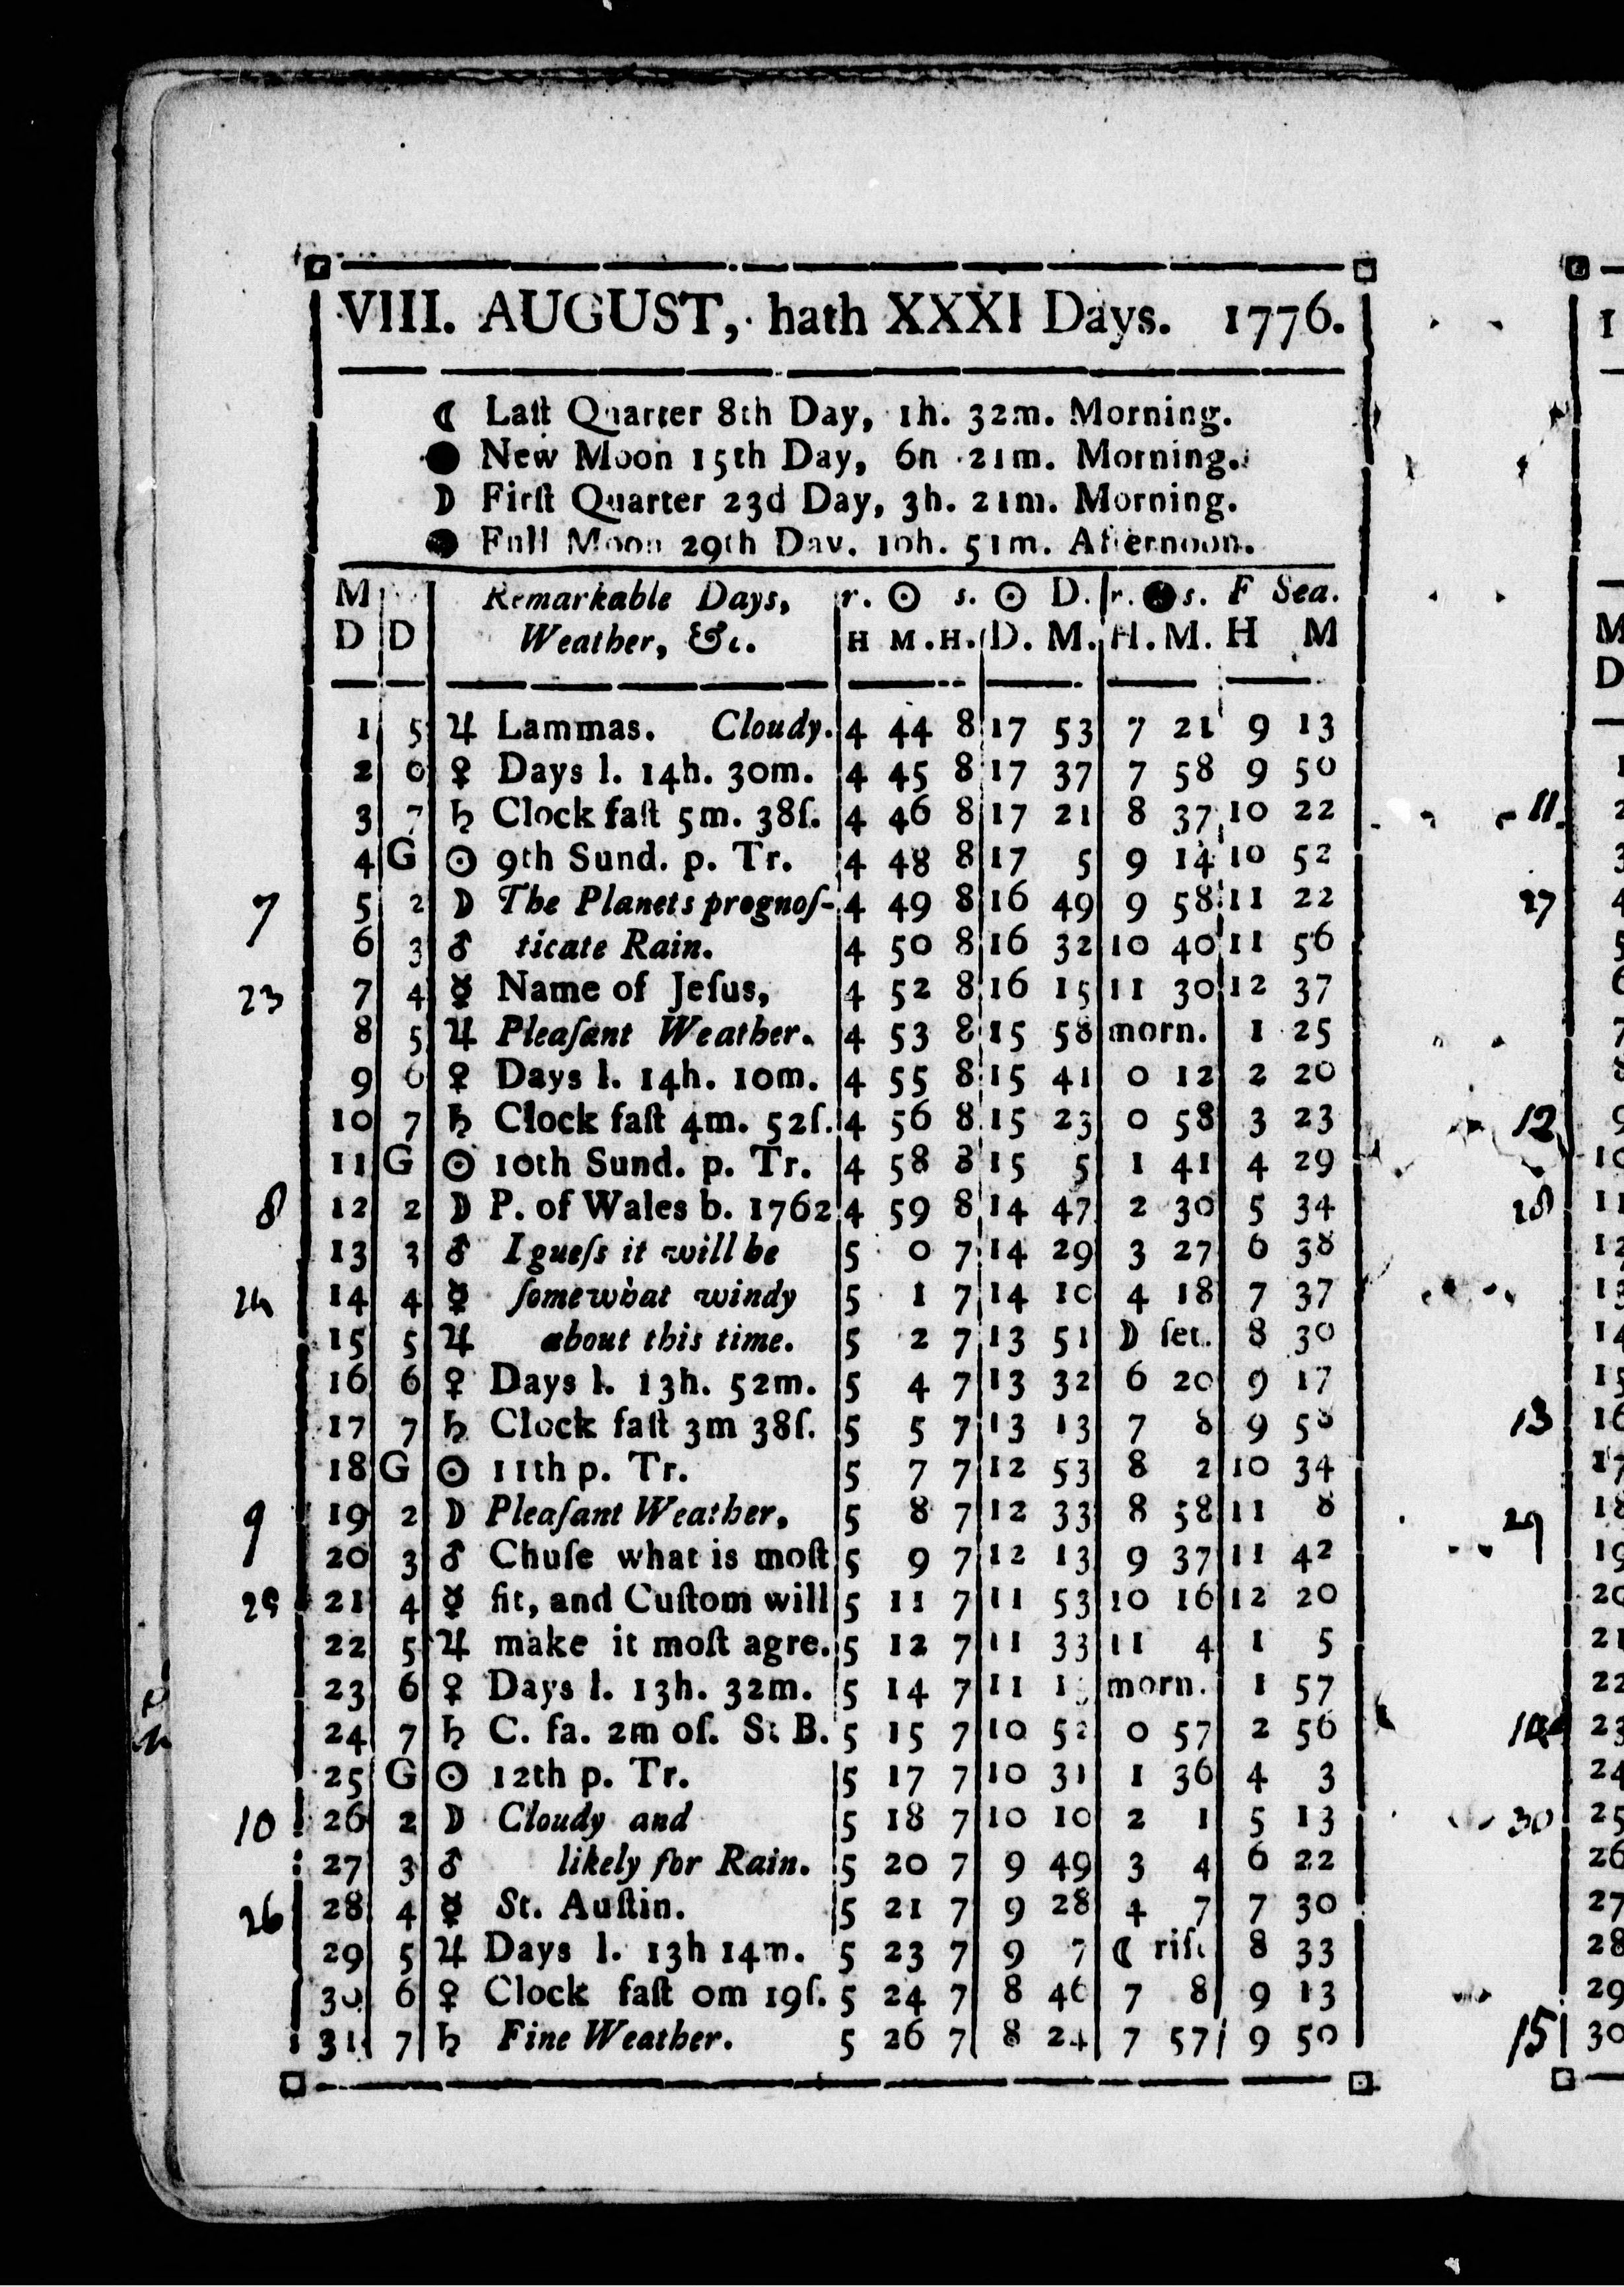 VIII. AUGUST, hath XXXI Days. 1776.
☾ Laſt Quarter 8th Day, 1h. 32m. Morning.
● New Moon 15th Day, 6h 21m. Morning.
☽ Firſt Quarter 23d Day, 3h. 21m. Morning.
Full Moon 29th Day. 10h. 51m. Afternoon.
M Remarkable Days, r. ☉ s. ☉ D. r. s. F Sea.
D D Weather, &c. H M. H. D. M. H. M. H M
1 5 ♃ Lammas. Cloudy. 4 44 8 17 53 7 21 9 13
2 0 ♀ Days l. 14h. 30m. 4 45 8 17 37 7 58 9 50
3 7 ♄ Clock faſt 5m. 38ſ. 4 46 8 17 21 8 37 10 22
4 G ☉ 9th Sund. p. Tr. 4 48 8 17 5 9 14 10 52
7 5 2 ☽ The Planets prognoſ- 4 49 8 16 49 9 58 11 22
6 3 ♂ ticate Rain. 4 50 8 16 32 10 40 11 56
23 7 4 ☿ Name of Jeſus, 4 52 8 16 15 11 30 12 37
8 5 ♃ Pleaſant Weather. 4 53 8 15 58 morn. 1 25
9 6 ♀ Days l. 14h. 10m. 4 55 8 15 41 0 12 2 20
10 7 ♄ Clock faſt 4m. 52ſ. 4 56 8 15 23 0 58 3 23
11 G ☉ 10th Sund. p. Tr. 4 58 8 15 5 1 41 4 29
8 12 2 ☽ P. of Wales b. 1762 4 59 8 14 47 2 30 5 34
13 3 ♂ I gueſs it will be 5 0 7 14 29 3 27 6 38
24 14 4 ☿ ſomewhat windy 5 1 7 14 10 4 18 7 37
15 5 ♃ about this time. 5 2 7 13 51 ☽ ſet. 8 30
16 6 ♀ Days l. 13h. 52m. 5 4 7 13 32 6 20 9 17
17 7 ♄ Clock faſt 3m 38ſ. 5 5 7 13 13 7 8 9 58
18 G ☉ 11th p. Tr. 5 7 7 12 53 8 2 10 34
9 19 2 ☽ Pleaſant Weather, 5 8 7 12 33 8 58 11 8
20 3 ♂ Chuſe what is moſt 5 9 7 12 13 9 37 11 42
25 21 4 ☿ fit, and Cuſtom will 5 11 7 11 53 10 16 12 20
22 5 ♃ make it moſt agre. 5 12 7 11 33 11 4 1 5
23 6 ♀ Days l. 13h. 32m. 5 14 7 11 morn. 1 57
24 7 ♄ C. fa. 2m 0ſ. St B. 5 15 7 10 52 0 57 2 56
25 G ☉ 12th p. Tr. 5 17 7 10 31 1 36 4 3
10 26 2 ☽ Cloudy and 5 18 7 10 10 2 1 5 13
27 3 ♂ likely for Rain. 5 20 7 9 49 3 4 6 22
26 28 4 ☿ St. Auſtin. 5 21 7 9 28 4 7 7 30
29 5 ♃ Days l. 13h 14m. 5 23 7 9 7 ☾ riſe 8 33
30 6 ♀ Clock faſt 0m 19ſ. 5 24 7 8 46 7 8 9 13
31 7 ♄ Fine Weather. 5 26 7 8 24 7 57 9 50
11
27
12
28
13
29
14
30
15
I
M
D
1
2
3
4
5
6
7
8
9
10
11
12
13
14
15
16
17
18
19
20
21
22
23
24
25
26
27
28
29
30